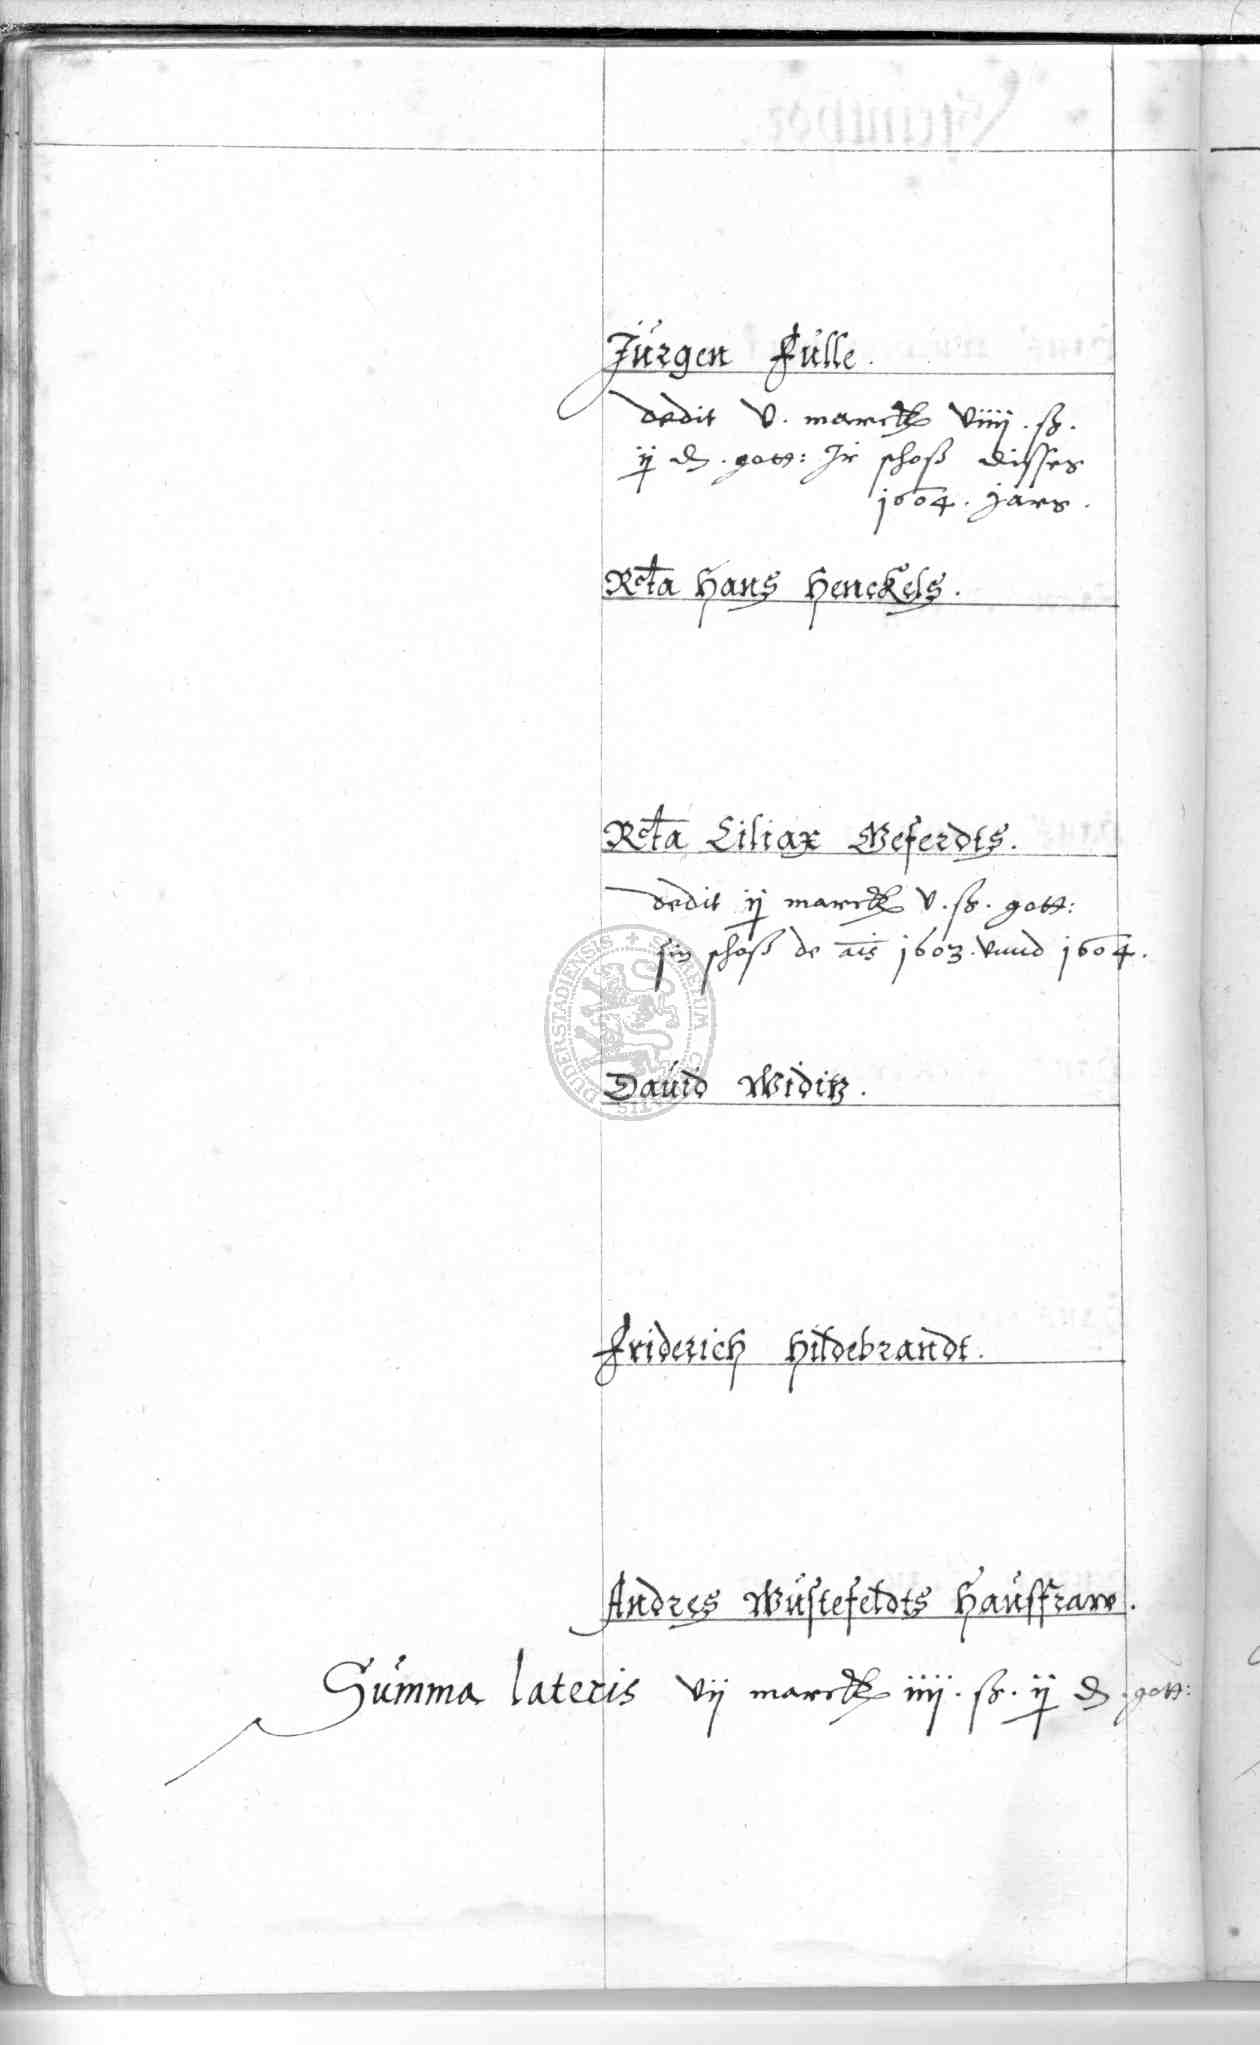 Jürgen Fülle.
dedit v. marck viiij. ß.
ij d. gott: Ir schoß disses
1604. Jars.
Rcta Hans Henckels.
Rcta Ciliax Geferdts.
dedit ij marck v. ß. gott:
sin schoß de ais 1603. vnnd 1604.
Dauid Widitz.
Friderich Hildebrandt.
Andres Wüstefeldts Haußfraw.
Summa lateris vij marck iiij. ß. ij d. gott: